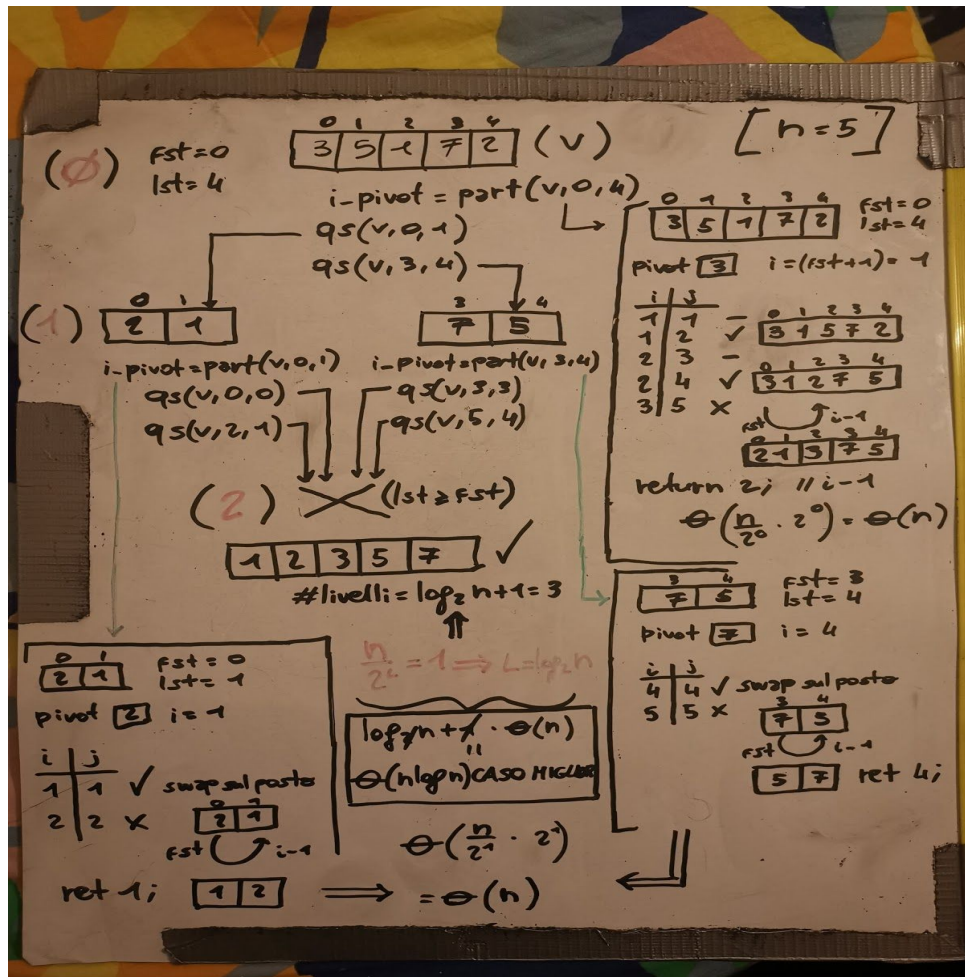 (0) fst=0
lst=4
0 1 2 3 4
3 5 1 7 2 (v)
[n=5]
i-pivot = part(v,0,4)
qs(v,0,1)
qs(v,3,4)
(1)
0 1
2 1
3 4
7 5
i-pivot=part(v,0,1)
qs(v,0,0)
qs(v,2,1)
i-pivot=part(v,3,4)
qs(v,3,3)
qs(v,5,4)
(2) (lst≥fst)
1 2 3 5 7 ✓
#livelli = log₂ n+1 = 3
n/2^L = 1 ⟹ L=log₂n
log₂n+1 · Θ(n)
=
Θ(nlogn) CASO MIGLIOR
Θ(n/2¹ · 2¹)
= Θ(n)
0 1 2 3 4
3 5 1 7 2
fst=0
lst=4
pivot 3 i=(fst+1)=1
i j
1 1 –
1 2 ✓
2 3 –
2 4 ✓
3 5 ×
0 1 2 3 4
3 1 5 7 2
0 1 2 3 4
3 1 2 7 5
fst i-1
0 1 2 3 4
2 1 3 7 5
return 2; // i-1
Θ(n/2⁰ · 2⁰) = Θ(n)
3 4
7 5
fst=3
lst=4
pivot 7 i=4
i j
4 4 ✓ swap sul posto
5 5 ×
3 4
7 5
fst i-1
5 7 ret 4;
0 1
2 1
fst=0
lst=1
pivot 2 i=1
i j
1 1 ✓ swap sul posto
2 2 ×
0 1
2 1
fst i-1
ret 1; 1 2